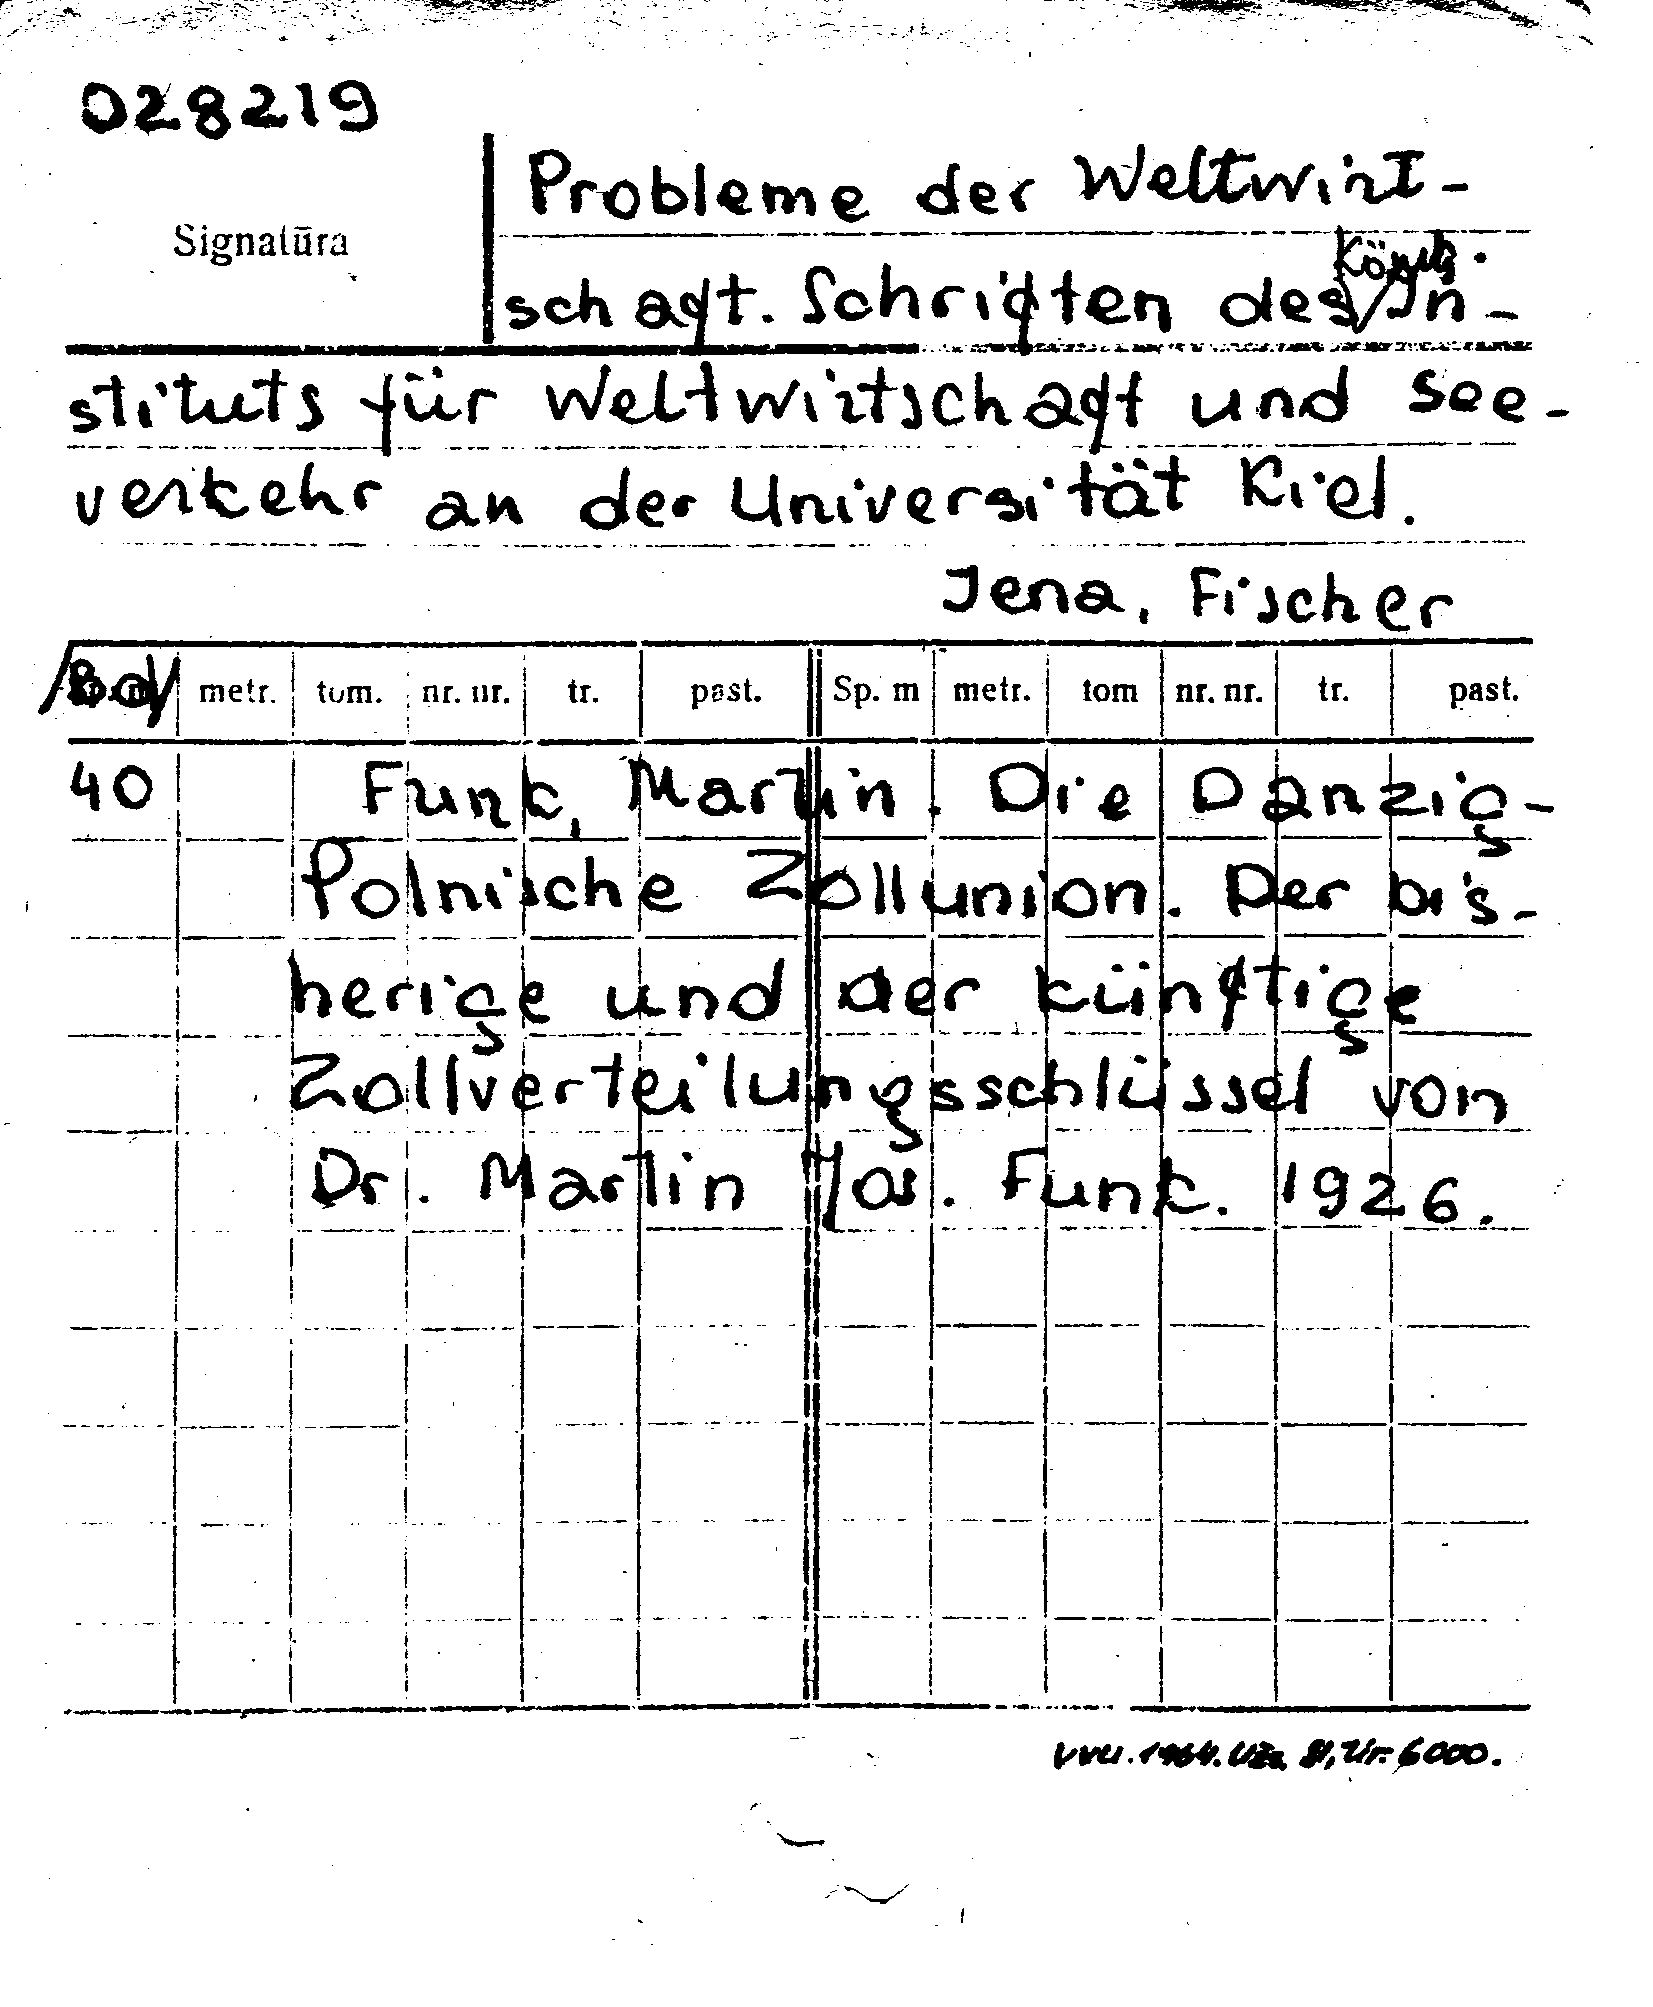 028219
Probleme der Weltwirt-
Signatūra
Königl.
schaft. Schriften des In-
stituts für Weltwirtschaft und See-
verkehr an der Universität Kiel.
Jena, Fischer
Bd metr. tom. nr. nr. tr. past. Sp. m metr. tom nr. nr. tr. past.
40 Funk, Martin. Die Danzig-
Polnische Zollunion. Der bis-
herige und der künftige
Zollverteilungsschlüssel von
Dr. Martin Jos. Funk. 1926.
VVU. 1964. Užs. 81, Tir. 6000.